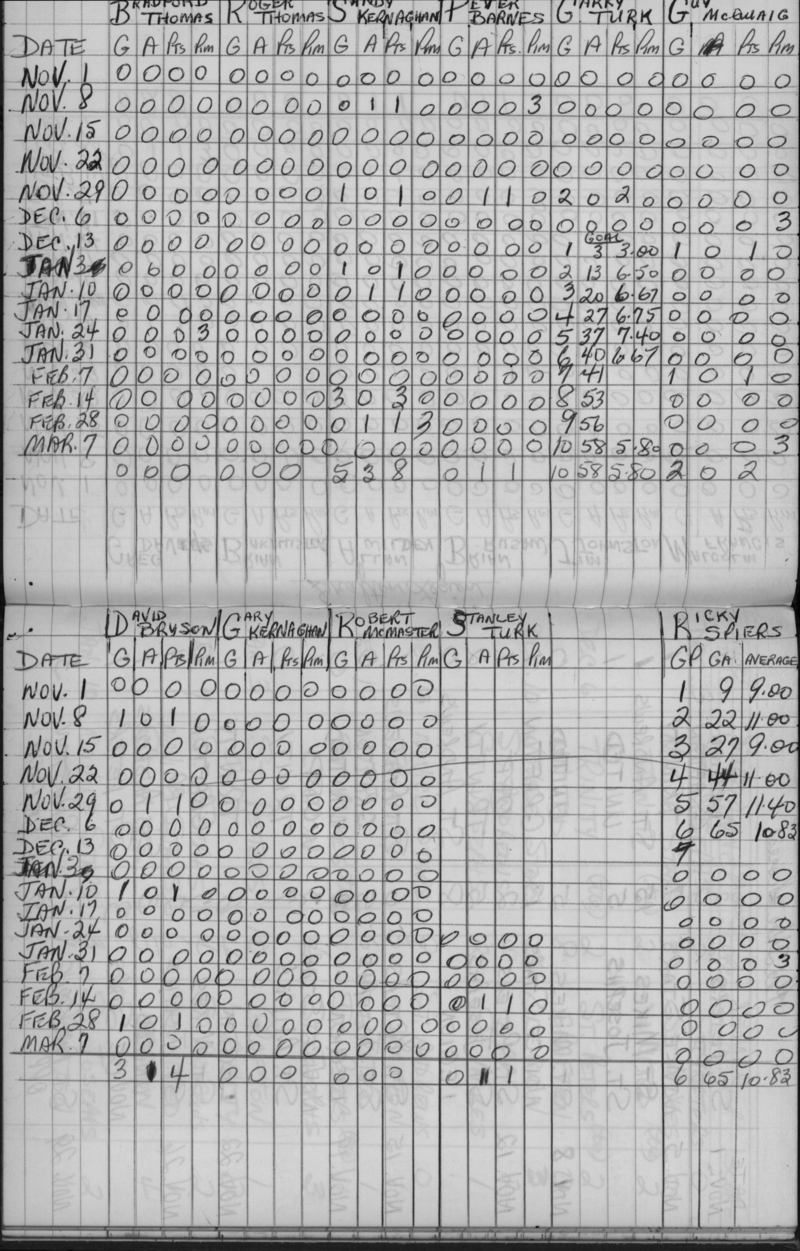 BRADFORD THOMAS ROGER THOMAS SANDY KERNAGHAN PETER BARNES GARRY TURK GUY McQUAIG
DATE G A Pts Pim G A Pts Pim G A Pts Pim G A Pts. Pim G A Pts Pim G A Pts Pim
NOV. 1 0 0 0 0 0 0 0 0 0 0 0 0 0 0 0 0 0 0 0 0 0 0 0 0
NOV. 8 0 0 0 0 0 0 0 0 0 1 1 0 0 0 0 3 0 0 0 0 0 0 0 0
NOV. 15 0 0 0 0 0 0 0 0 0 0 0 0 0 0 0 0 0 0 0 0 0 0 0 0
NOV. 22 0 0 0 0 0 0 0 0 0 0 0 0 0 0 0 0 0 0 0 0 0 0 0 0
NOV. 29 0 0 0 0 0 0 0 0 1 0 1 0 0 1 1 0 2 0 2 0 0 0 0 0
DEC. 6 0 0 0 0 0 0 0 0 0 0 0 0 0 0 0 0 0 0 0 0 0 0 0 3
GOAL
DEC. 13 0 0 0 0 0 0 0 0 0 0 0 0 0 0 0 0 1 3 3.00 1 0 1 0
JAN 3 0 0 0 0 0 0 0 0 1 0 1 0 0 0 0 0 2 13 6.50 0 0 0 0
JAN. 10 0 0 0 0 0 0 0 0 0 1 1 0 0 0 0 0 3 20 6.67 0 0 0 0
JAN. 17 0 0 0 0 0 0 0 0 0 0 0 0 0 0 0 0 4 27 6.75 0 0 0 0
JAN. 24 0 0 0 3 0 0 0 0 0 0 0 0 0 0 0 0 5 37 7.40 0 0 0 0
JAN. 31 0 0 0 0 0 0 0 0 0 0 0 0 0 0 0 0 6 40 6.67 0 0 0 0
FEB. 7 0 0 0 0 0 0 0 0 0 0 0 0 0 0 0 0 7 41 1 0 1 0
FEB. 14 0 0 0 0 0 0 0 0 3 0 3 0 0 0 0 0 8 53 0 0 0 0
FEB. 28 0 0 0 0 0 0 0 0 0 1 1 3 0 0 0 0 9 56 0 0 0 0
MAR. 7 0 0 0 0 0 0 0 0 0 0 0 0 0 0 0 0 10 58 5.80 0 0 0 3
0 0 0 0 0 0 5 3 8 0 1 1 10 58 5.80 2 0 2
DAVID BRYSON GARY KERNAGHAN ROBERT McMASTER STANLEY TURK RICKY SPIERS
DATE G A Pts Pim G A Pts Pim G A Pts Pim G A Pts Pim GP GA. AVERAGE
NOV. 1 0 0 0 0 0 0 0 0 0 0 0 0 1 9 9.00
NOV. 8 1 0 1 0 0 0 0 0 0 0 0 0 2 22 11.00
NOV. 15 0 0 0 0 0 0 0 0 0 0 0 0 3 27 9.00
NOV. 22 0 0 0 0 0 0 0 0 0 0 0 0 4 44 11.00
NOV. 29 0 1 1 0 0 0 0 0 0 0 0 0 5 57 11.40
DEC. 6 0 0 0 0 0 0 0 0 0 0 0 0 6 65 10.83
DEC. 13 0 0 0 0 0 0 0 0 0 0 0 0 7
JAN 3 0 0 0 0 0 0 0 0 0 0 0 0 0 0 0 0
JAN. 10 1 0 1 0 0 0 0 0 0 0 0 0 0 0 0 0
JAN. 17 0 0 0 0 0 0 0 0 0 0 0 0 0 0 0 0
JAN. 24 0 0 0 0 0 0 0 0 0 0 0 0 0 0 0 0 0 0 0 0
JAN. 31 0 0 0 0 0 0 0 0 0 0 0 0 0 0 0 0 0 0 0 3
FEB 7 0 0 0 0 0 0 0 0 0 0 0 0 0 0 0 0 0 0 0 0
FEB. 14 0 0 0 0 0 0 0 0 0 0 0 0 0 1 1 0 0 0 0 0
FEB. 28 1 0 1 0 0 0 0 0 0 0 0 0 0 0 0 0 0 0 0 0
MAR. 7 0 0 0 0 0 0 0 0 0 0 0 0 0 0 0 0 0 0 0 0
3 1 4 0 0 0 0 0 0 0 1 1 6 65 10.83